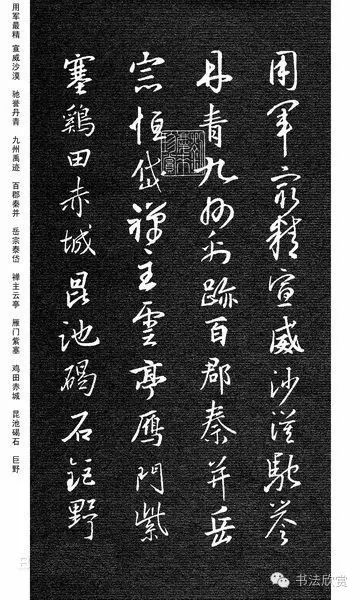 用軍最精宣威沙漠馳譽
丹青九州禹跡百郡秦并岳
宗恒岱禪主雲亭雁門紫
塞鷄田赤城昆池碣石鉅野
用军最精 宣威沙漠 驰誉丹青 九州禹迹 百郡秦井 岳宗泰岱 禅主云亭 雁门紫塞 鸡田赤城 昆池碣石 巨野
书法欣赏